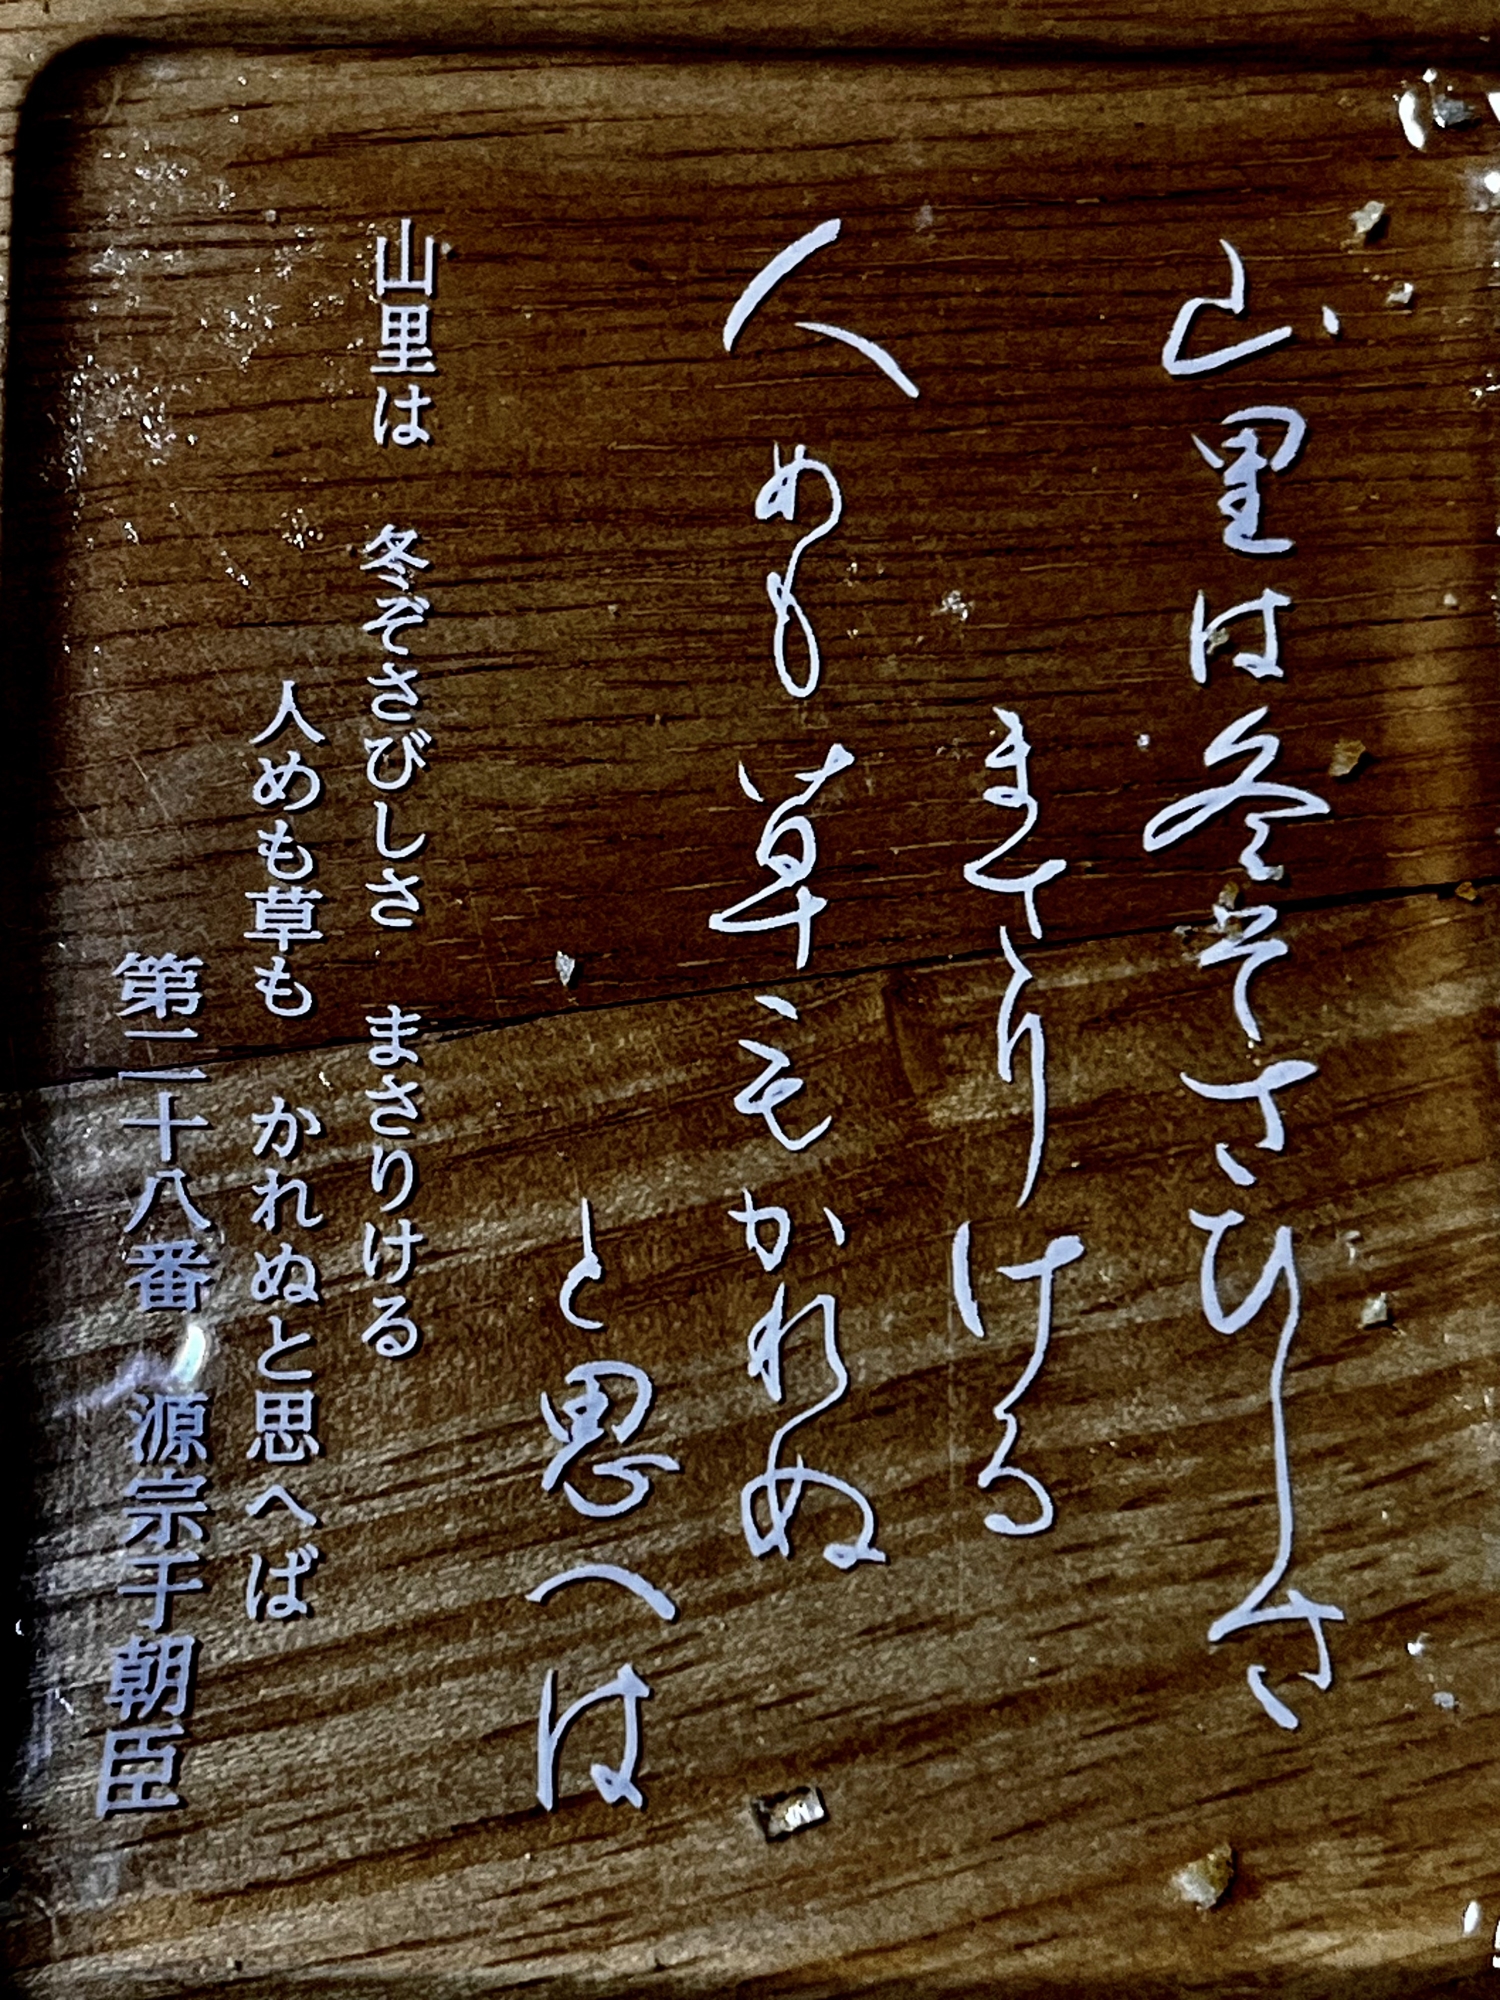 山里は冬そさひしさ
まさりける
人めも草もかれぬ
と思へは
山里は　冬ぞさびしさ　まさりける
人めも草も　かれぬと思へば
第二十八番　源宗于朝臣